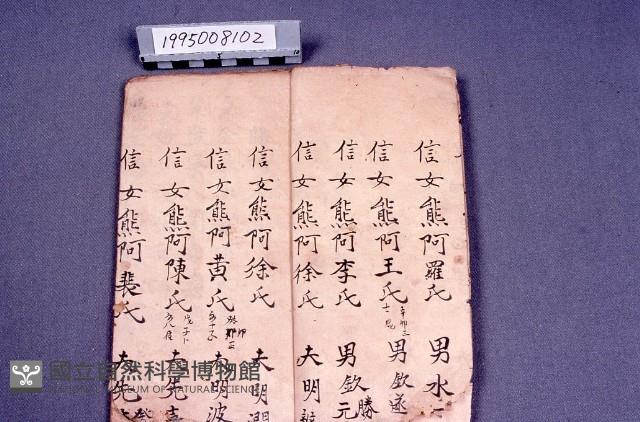 1995008102
信女熊阿羅氏 男水
信女熊阿王氏 男欽遂
信女熊阿李氏 男欽元 勝
信女熊阿徐氏 夫明
信女熊阿徐氏 夫明
信女熊阿黄氏 夫明波
信女熊阿陳氏 夫先
信女熊阿裴氏 夫先
國立自然科學博物館
MUSEUM OF NATURAL SCIENCE